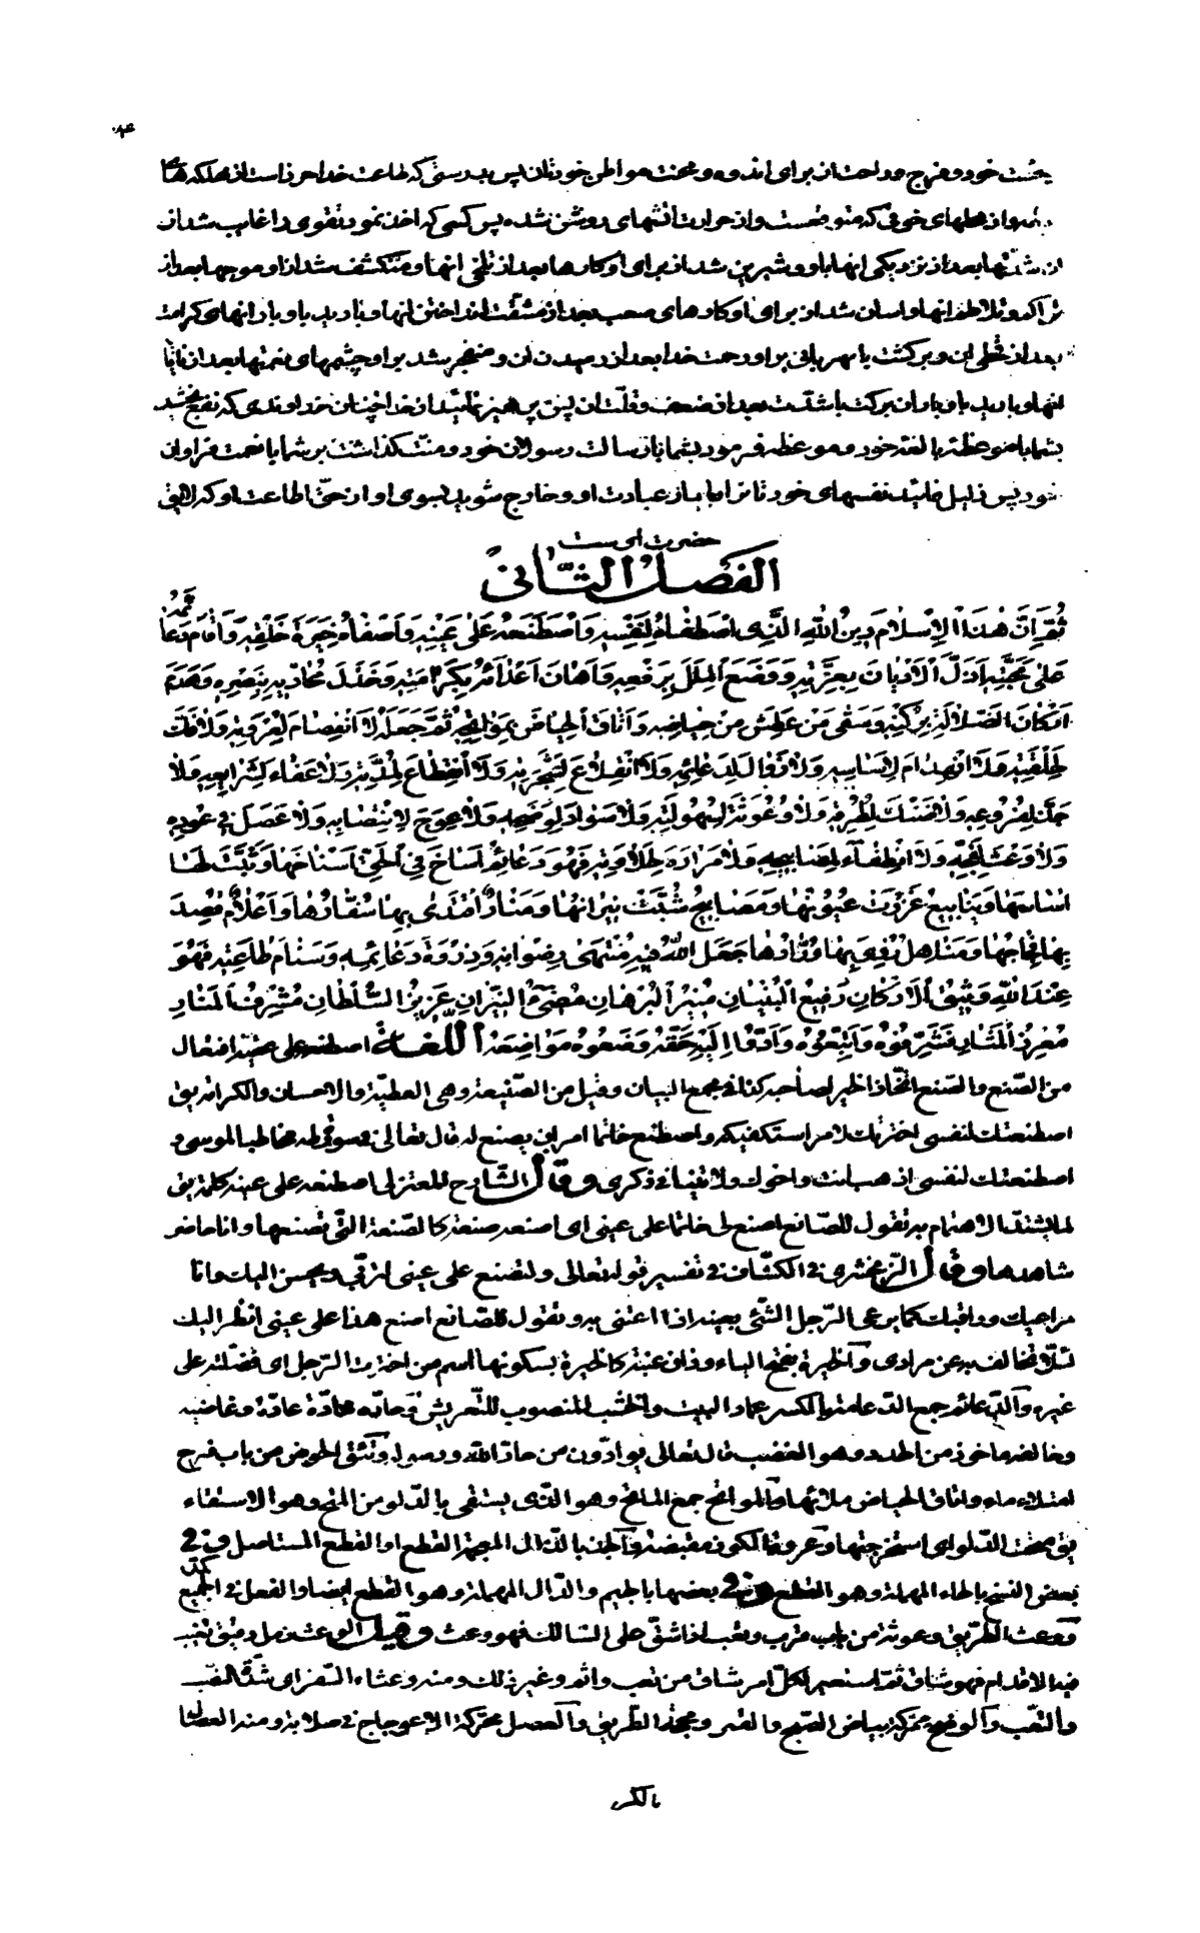 وحشت خود و فرج و راحتتان برای اندوه و محنت مواطن خودتان پس بدرستی که طاعت خدا حرز است از مهلکه‌هائی
و از محلهای خوفی که متوقعست و از حرارت آتشهای روشن شده پس کسی که اخذ نمود تقوی را غایب شد از
آن شدّتها بعد از نزدیکی آنها باو و شیرین شد از برای او کارها بعد از تلخی آنها و منکشف شد از او موجها بعد از
تراکم و تلاطم آنها و آسان شد از برای او کارهای صعب بعد از مشقّت انداختن آنها و بارید باو بارانهای کرامت
بعد از قحطی آن و برگشت با مهربانی براو رحمت خدا بعد از رمیدن آن و منفجر شد براو چشمهای نعمتها بعد از نایابی
آنها و بارید باو باران برکت باشدّت بعد از ضعف و قلّت آن پس پرهیز نمائید از خدا چنان خداوندی که نفع بخشید
بشما با موعظه بالغه خود و موعظه فرمود بشما با رسالت رسولان خود و منّت گذاشت بر شما با نعمت فراوان
خود پس ذلیل نمائید نفسهای خودتانرا از برای عبادت او و خارج شوید بسوی او از حقّ اطاعت او که لایق
حضرت اوست
الفصل الثّانی
ثُمَّ اِنَّ هٰذَا الْاِسْلامَ دینُ اللهِ الَّذِی اصْطَفاهُ لِنَفْسِهِ وَاصْطَنَعَهُ عَلٰی عَیْنِهِ وَاَصْفاهُ خِیَرَةَ خَلْقِهِ وَاَقامَ دَعائِمَهُ
عَلٰی مَحَبَّتِهِ اَذَلَّ الْاَدْیانَ بِعِزَّتِهِ وَوَضَعَ الْمِلَلَ بِرَفْعِهِ وَاَهانَ اَعْدائَهُ بِکَرامَتِهِ وَخَذَلَ مُحادّیهِ بِنَصْرِهِ وَهَدَمَ
اَرْکانَ الضَّلالَةِ بِرُکْنِهِ وَسَقٰی مَنْ عَطِشَ مِنْ حِیاضِهِ وَاَتْاَقَ الْحِیاضَ بِمَواتِحِهِ ثُمَّ جَعَلَهُ لَا انْفِصامَ لِعُرْوَتِهِ وَلا فَکَّ
لِحَلْقَتِهِ وَلَا انْهِدامَ لِاَساسِهِ وَلا زَوالَ لِدَعائِمِهِ وَلَا انْقِلاعَ لِشَجَرَتِهِ وَلَا انْقِطاعَ لِمُدَّتِهِ وَلا عَفاءَ لِشَرایِعِهِ وَلا
جَذَّ لِفُرُوعِهِ وَلا ضَنْکَ لِطُرُقِهِ وَلا وُعُوثَةَ لِسُهُولَتِهِ وَلا سَوادَ لِوَضَحِهِ وَلا عِوَجَ لِانْتِصابِهِ وَلا عَصَلَ فی عُودِهِ
وَلا وَعَثَ لِفَجِّهِ وَلَا انْطِفاءَ لِمَصابیحِهِ وَلا مَرارَةَ لِحَلاوَتِهِ فَهُوَ دَعائِمُ اَساخَ فِی الْحَقِّ اَسْناخَها وَثَبَّتَ لَها
اَساسَها وَیَنابیعُ غَزُرَتْ عُیُونُها وَمَصابیحُ شُبَّتْ نیرانُها وَمَنارٌ اقْتَدٰی بِها سُفّارُها وَاَعْلامٌ قُصِدَ
بِها فِجاجُها وَمَناهِلُ رَوِیَ بِها وُرّادُها جَعَلَ اللهُ فیهِ مُنْتَهٰی رِضْوانِهِ وَذِرْوَةَ دَعائِمِهِ وَسَنامَ طاعَتِهِ فَهُوَ
عِنْدَ اللهِ وَثیقُ الْاَرْکانِ رَفیعُ الْبُنْیانِ مُنیرُ الْبُرْهانِ مُضیءُ النّیرانِ عَزیزُ السُّلْطانِ مُشْرِفُ الْمَنارِ
مُعْوِزُ الْمَثارِ فَشَرِّفُوهُ وَاتَّبِعُوهُ وَاَدُّوا اِلَیْهِ حَقَّهُ وَضَعُوهُ مَواضِعَهُ اللّغة اصطنعه علی عینه افتعال
من الصّنع والصّنع اتّخاذ الخیر لصاحبه کذا فی مجمع البیان وقیل من الصّنیعة وهی العطیّة والاحسان والکرامة یق
اصطنعتک لنفسی اخترتک لامر استکفیکه واصطنع خاتما امر ان یصنع له قال تعالی فی سورة طه مخاطبا لموسی و
اصطنعتک لنفسی اذهب انت واخوک ولا تنیا فی ذکری وقال الشارح المعتزلی اصطنعه علی عینه کلمة یق
لما یشتدّ الاهتمام به تقول للصّانع اصنع لی خاتما علی عینی ای اصنعه صنعة کالصّنعة الّتی تصنعها وانا حاضر
شاهدها وقال الزّمخشری فی الکشّاف فی تفسیر قوله تعالی ولتصنع علی عینی لتربّی ویحسن الیک وانا
مراعیک وراقبک کما یرعی الرّجل الشّیء بعینه اذا اعتنی به وتقول للصّانع اصنع هذا علی عینی انظر الیک
لئلّا تخالف به عن مرادی والخیرة بفتح الیاء وزان عنبة کالخیرة بسکونها اسم من اخترت الرّجل ای فضّلته علی
غیره والدّعائم جمع الدّعامة بالکسر عماد البیت والخشب المنصوب للتّعریش وحادّه محادّة عادّة وغاضبه
وخالفه ماخوذ من الحدد وهو الغضب قال تعالی یوادّون من حادّ الله ورسوله وتئق الحوض من باب فرح
امتلاء ماء واتاق الحیاض ملائها والمواتح جمع الماتح وهو الّذی یستقی بالدّلو من المتح وهو الاستقاء
یق متحت الدّلو ای استخرجتها وعروة الکوز مقبضه والجذّ بالذّال المعجمة القطع او القطع المستاصل وفی
بعض النّسخ بالحاء المهملة وهو القطع وفی بعضها بالجیم والدّال المهملة وهو القطع ایضا والفعل فی الجمیع کمدّ
ووعث الطّریق وعوثة من باب قرب وتعب اذا شقّ علی السّالک فهو وعث وقیل الوعث رمل رقیق تغیب
فیه الاقدام فهو شاقّ ثمّ استعیر لکلّ امر شاقّ من تعب واثم وغیر ذلک ومنه وعثاء السّفر ای شدّة النّصب
والتّعب والوضح محرّکة بیاض الصّبح والقمر ومحجّة الطّریق والعصل محرّکة الاعوجاج فی صلابة ومنه العصال
بالکسر